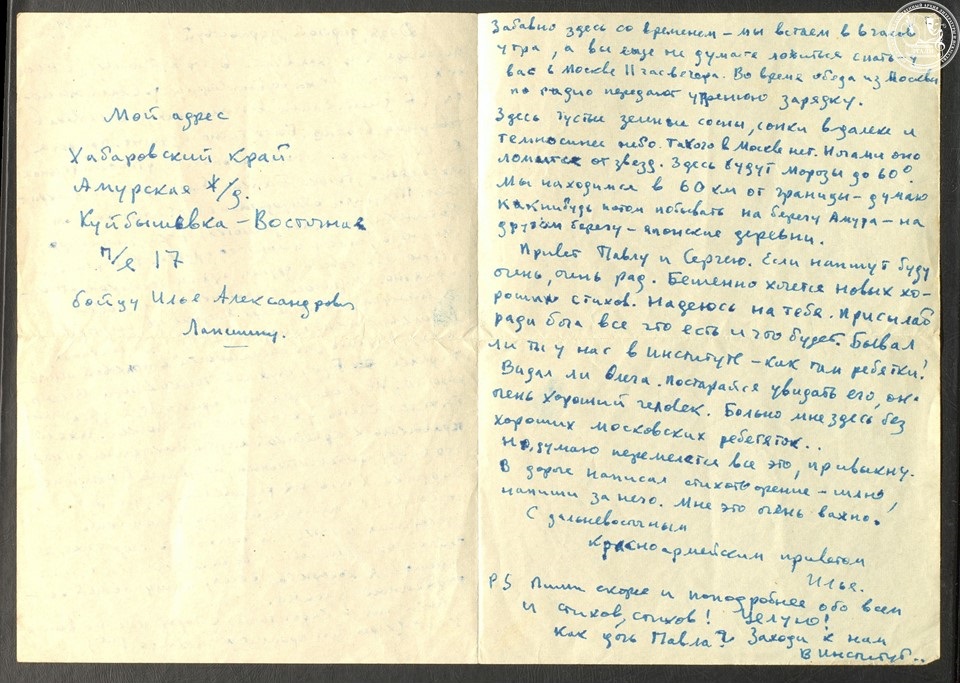 Мой адрес
Хабаровский край
Амурская ж/д.
Куйбышевка – Восточная
п/я 17
бойцу Илье Александрович
Лапшину.
Забавно здесь со временем – мы встаем в 6 часов
утра, а вы еще не думаете ложиться спать – у
вас в Москве 11 час вечера. Во время обеда из Москвы
по радио передают утреннюю зарядку.
Здесь густые зеленые сосны, сопки вдалеке и
темносинее небо. Такого в Москве нет. Ночами оно
ломится от звезд. Здесь будут морозы до 60°.
Мы находимся в 60 км от границы – думаю
как нибудь потом побывать на берегу Амура – на
другом берегу – японские деревни.
Привет Павлу и Сергею. Если напишут буду
очень, очень рад. Бешенно хочется новых хо-
роших стихов. Надеюсь на тебя. Присылай
ради бога все что есть и что будет. Бывал
ли ты у нас в институте – как там ребятки?
Видал ли Олега. Постарайся увидать его, он
очень хороший человек. Больно мне здесь без
хороших московских ребятяток..
Но, думаю перемелется все это, привыкну.
В дороге написал стихотворение – шлю,
напиши за него. Мне это очень важно.
С дальневосточным
Красноармейским приветом
Илья.
PS Пиши скорее и поподробнее обо всем
и стихов, стихов! Целую!
Как дочь Павла? Заходи к нам
в институт..